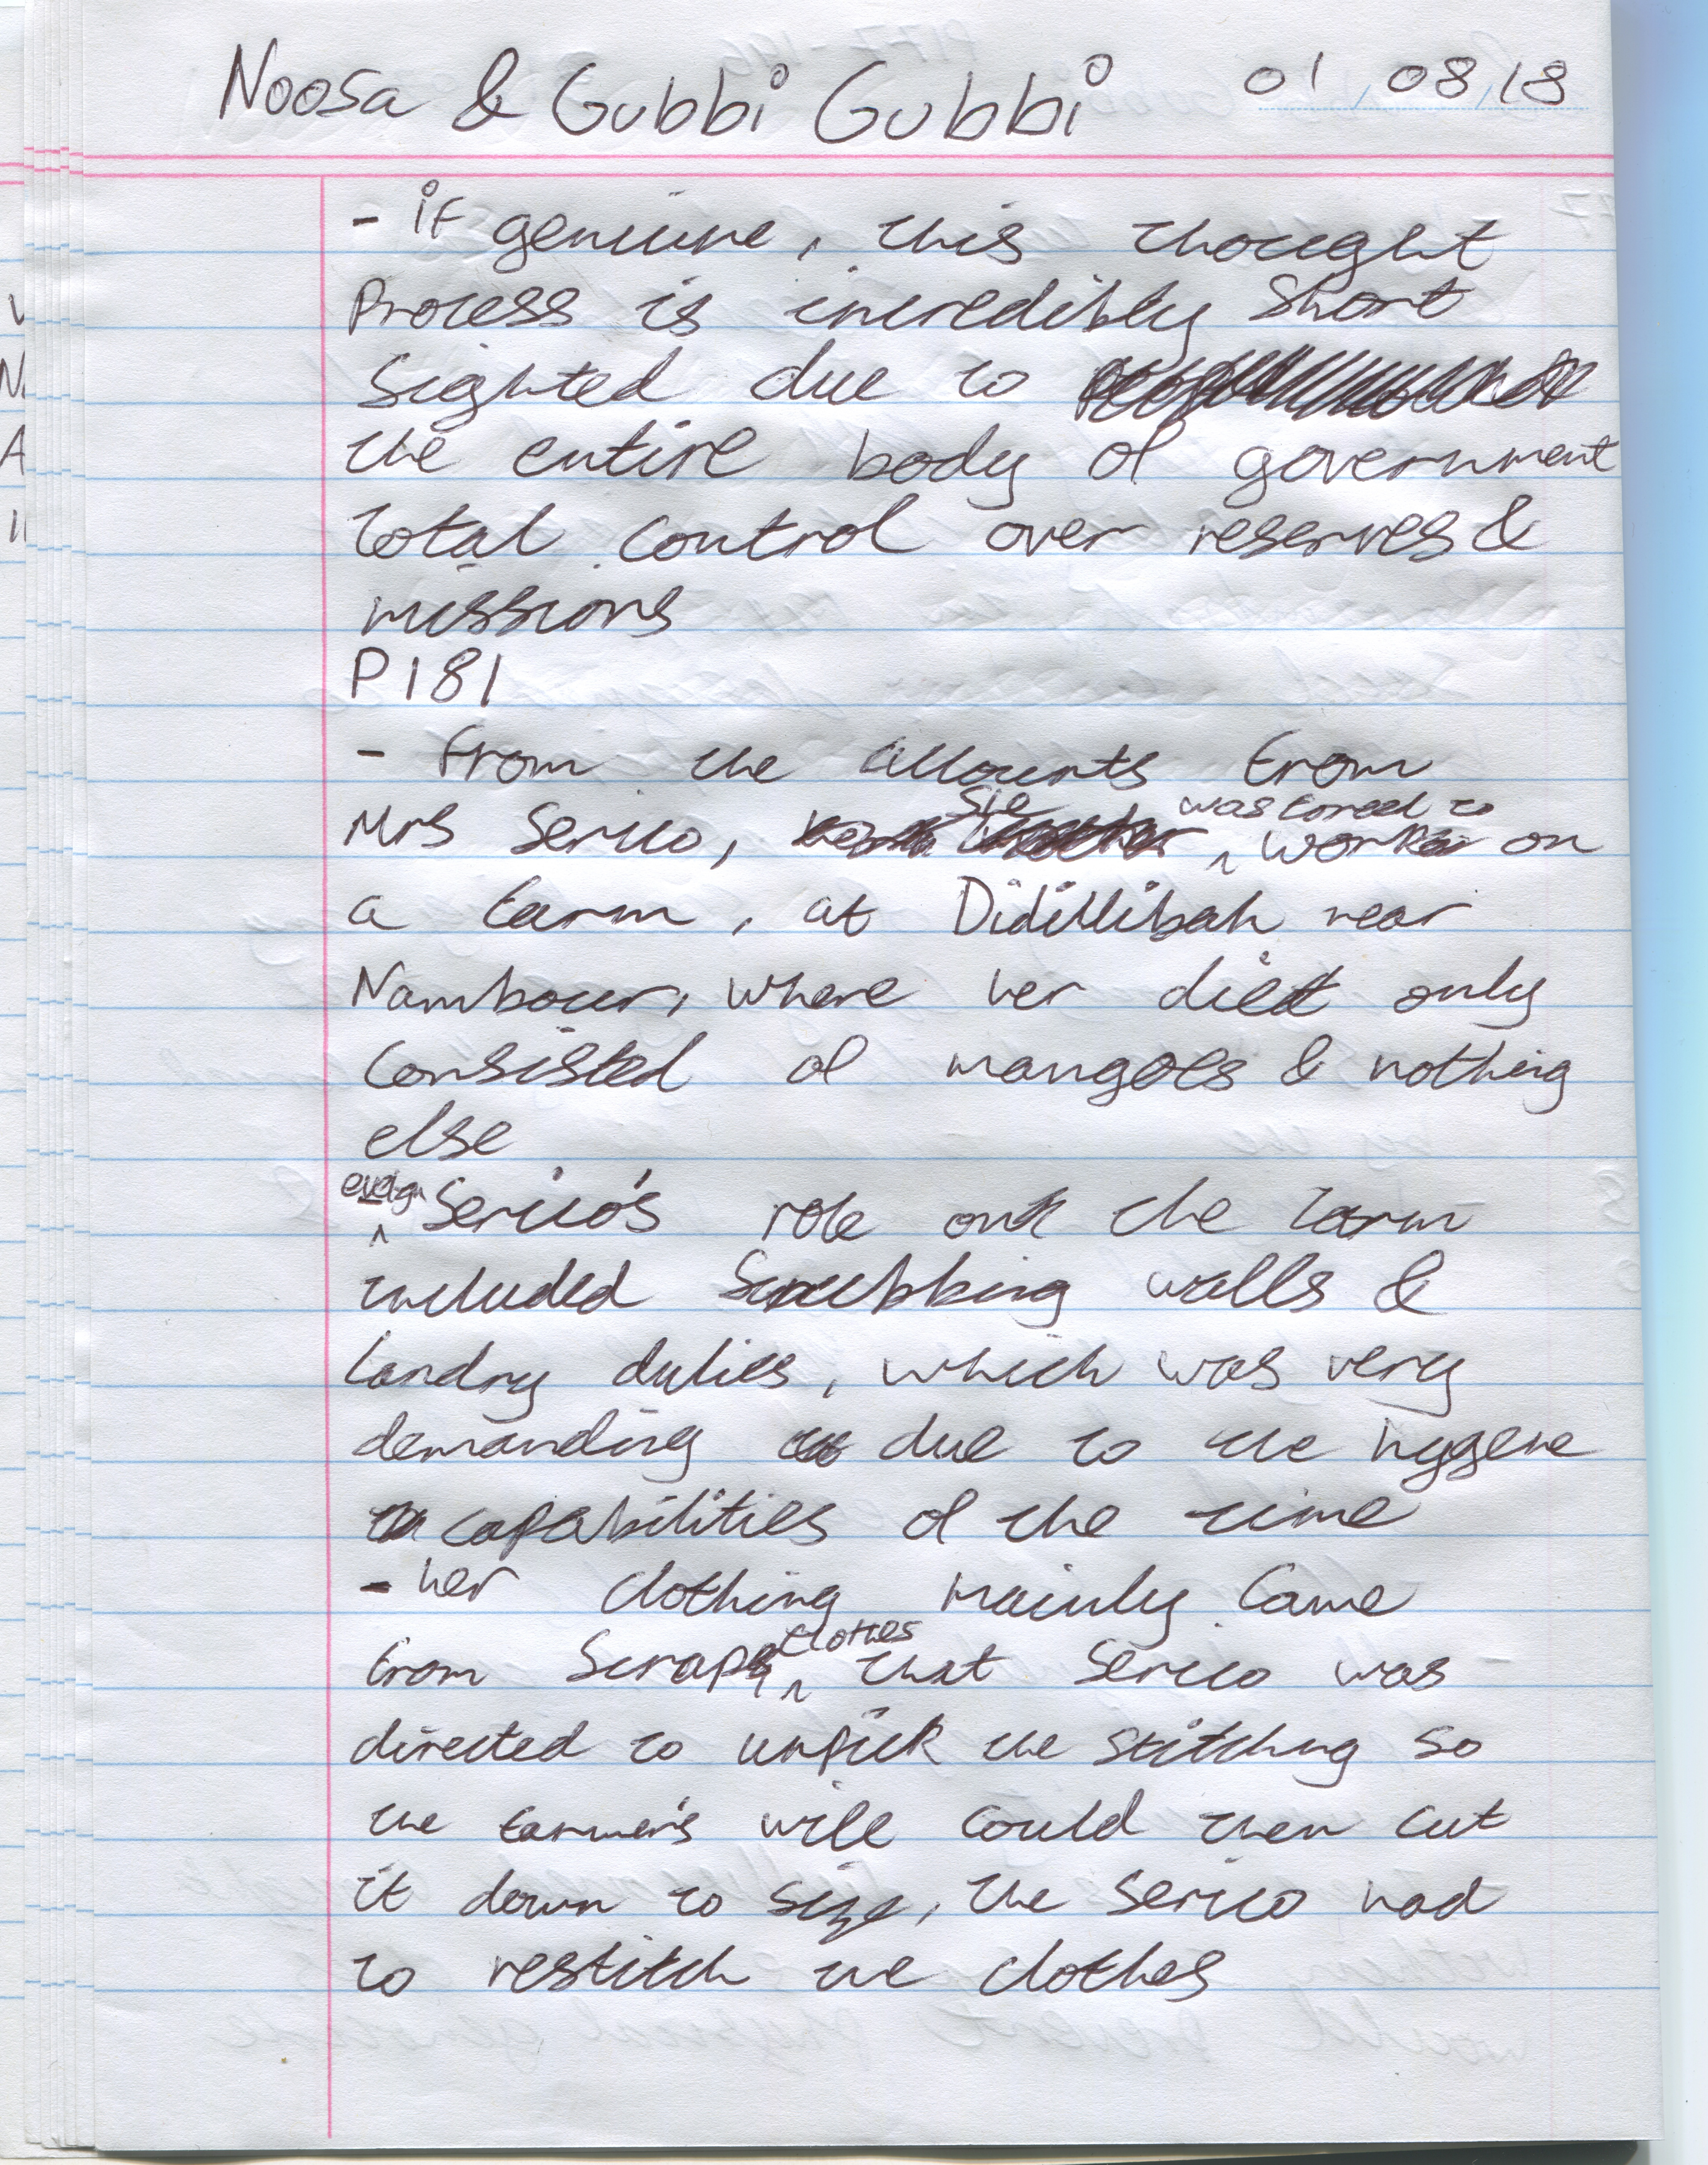 Noosa & Gubbi Gubbi 01/08/18
- if genuine, this thought
Process is incredibly short
sighted due to
the entire body of government
total control over reserves &
missions
P181
- From the accounts from
Mrs Serico, was forced to work on
a farm, at Didillibah near
Nambour, where her diet only
consisted of mangoes & nothing
else
Serico's role on the farm
included scrubbing walls &
landry duties, which was very
demanding due to the hygene
capabilities of the time
- her clothing mainly came
from scrap clothes that Serico was
directed to unpick the stitchng so
the farmer's wife could then cut
it down to size, the Serico had
to restitch the clothes